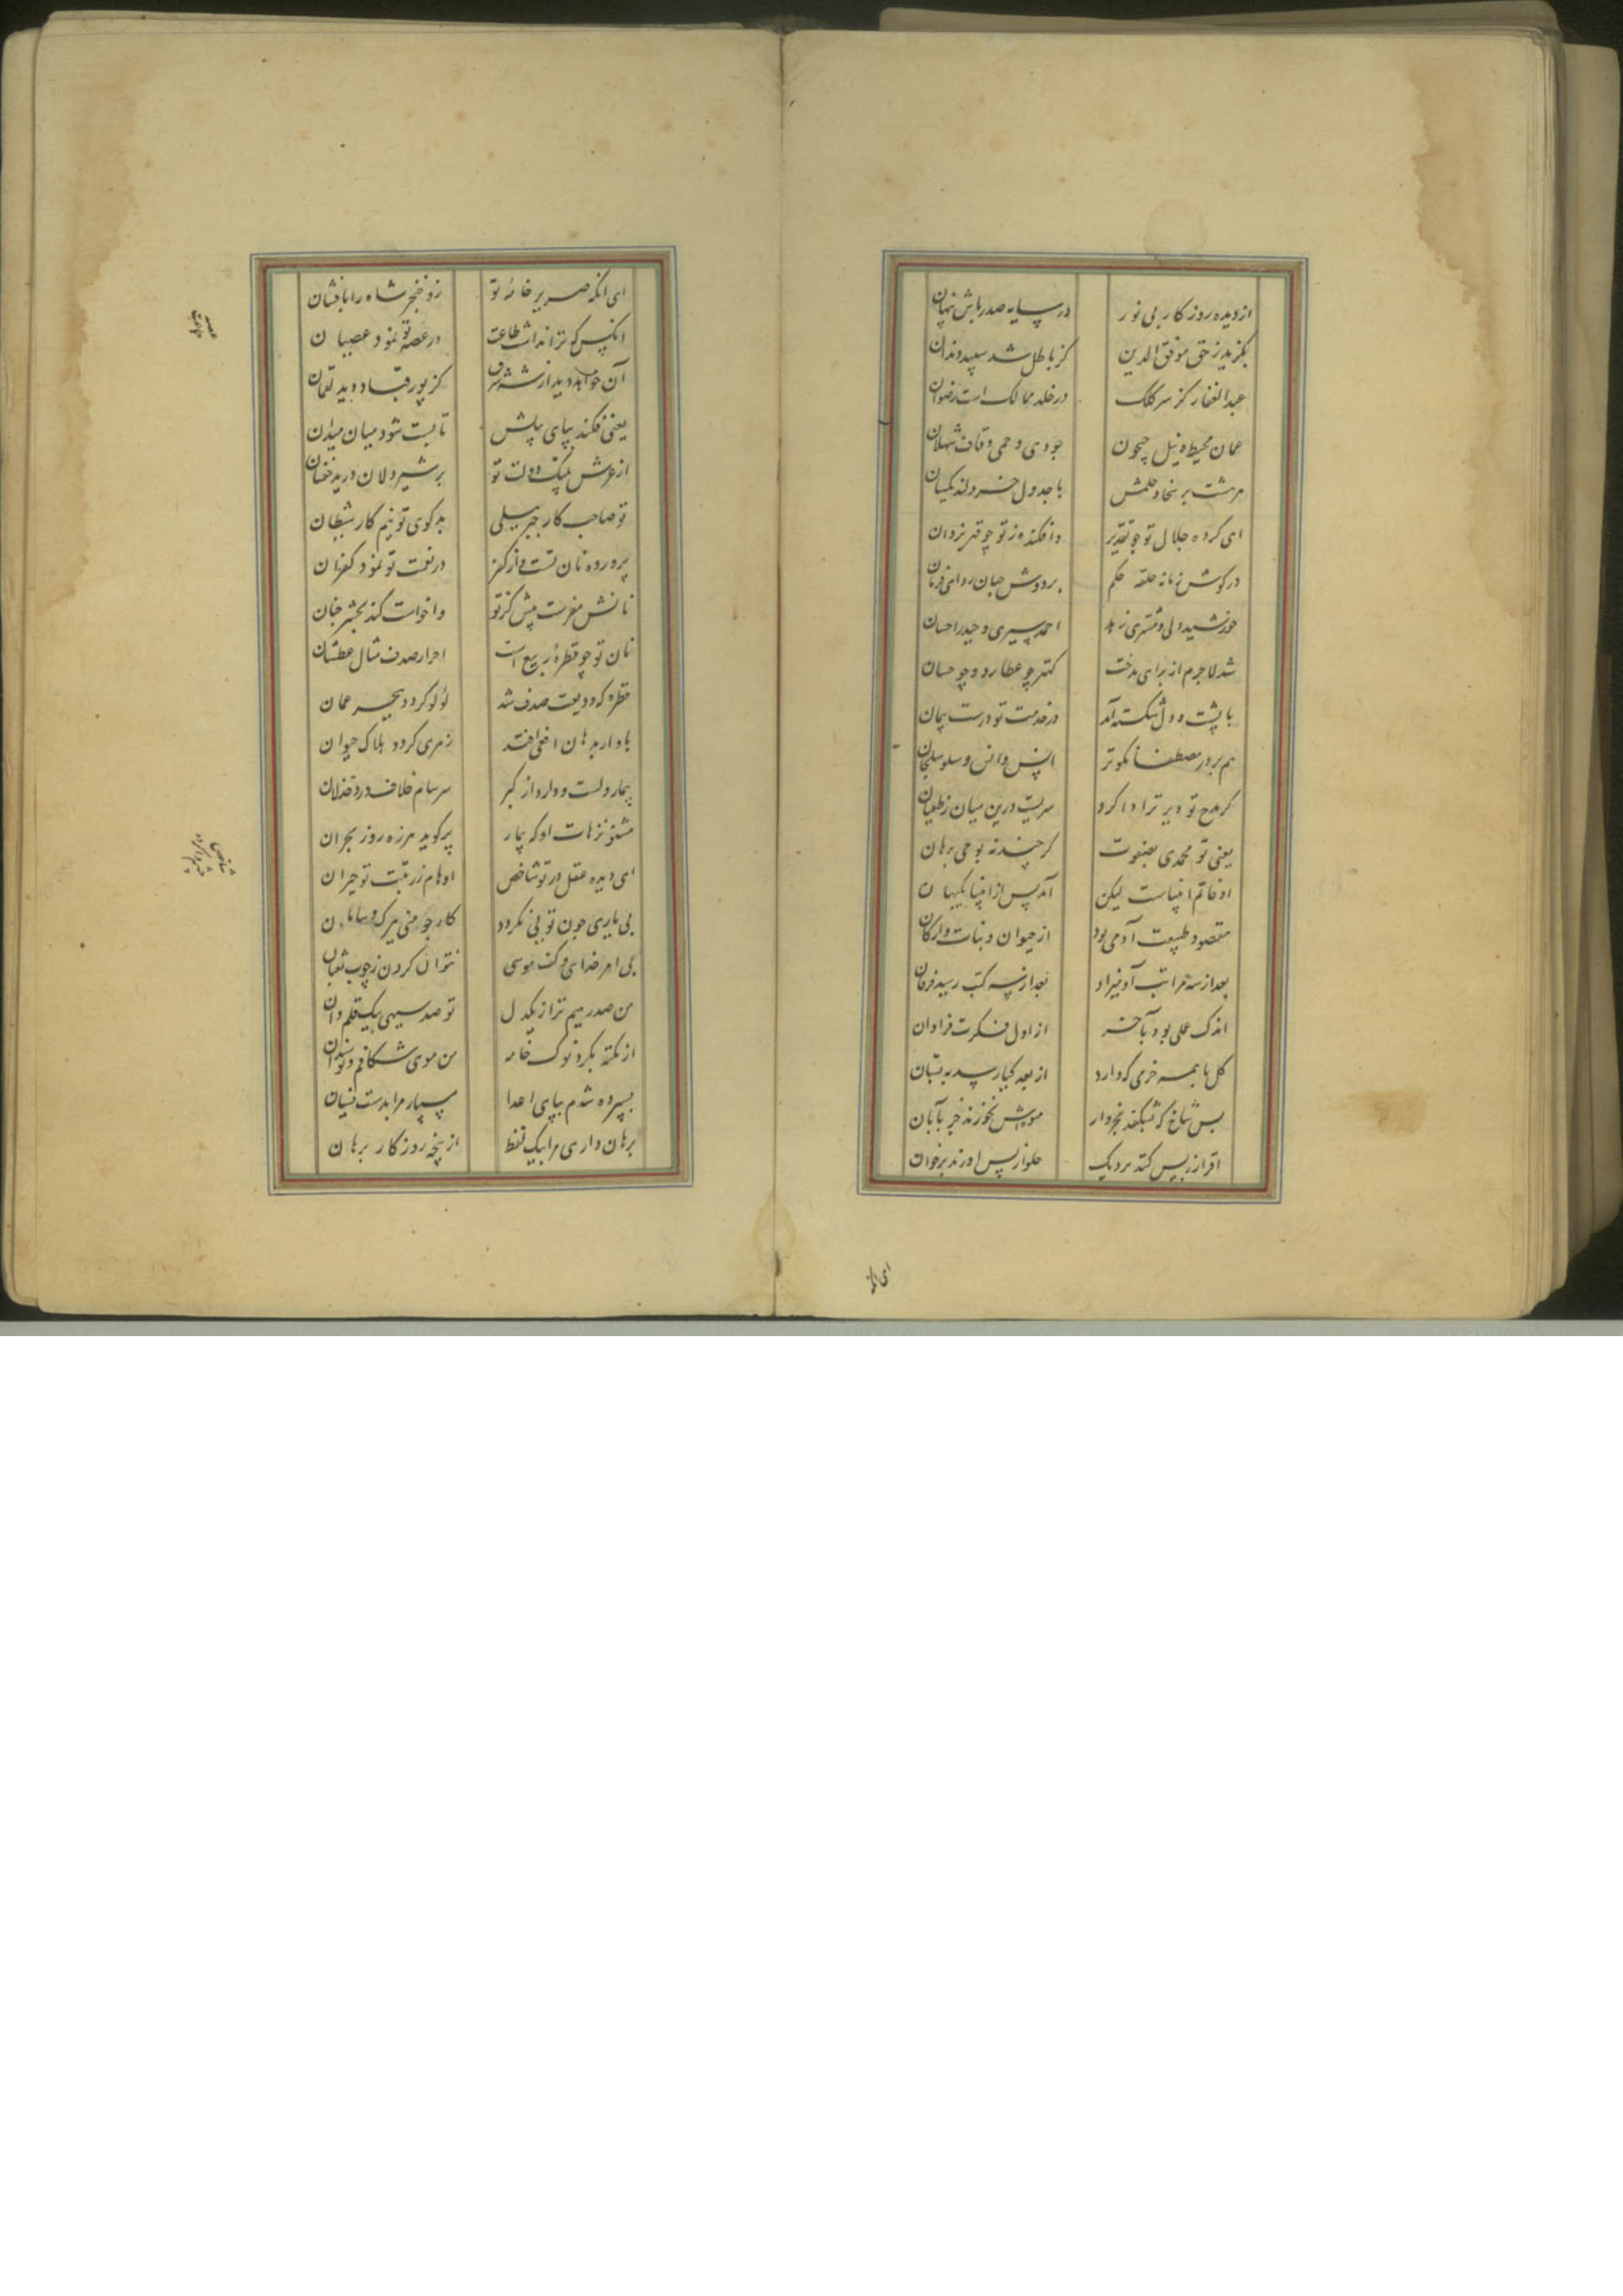 از دیده روزکار بی نور در سایه صدر باش پنهان
بگزید ز حق موفق الدین کز باطل شد سپید دندان
عبد الغفار کز سر کلک در خلد ممالک است رضوان
عمان محیط و نیل جیحون جودی و حمی و قاف ثهلان
بر سخا و حلمش با جدول
ای کرده جلال تو چو تقدیر وافکنده ز تو چو قهر یزدان
در کوش زمانه حلقه حکم بر دوش جهان ردای فرمان
خورشید دلی و مشتری زهد احمد سیری و حیدر احسان
شد لاجرم از برای مدحت کهتر چو عطارد و چو حسان
با پشت و دل شکسته آمد در خدمت تو درست پیمان
هم بر در مصطفی نکوتر انس و سلمان
کر مدح تو دیر تر ادا کرد سریست درین میان
یعنی تو محمدی بصفوت کرچند نه بوحی برهان
او خاتم انبیاست لیکن آمد پس از انبیا بکیهان
مقصود طبیعت آدمی بود از حیوان و نبات و ارکان
بعد از سه مراتب آدمیزاد بعد از سه کتب رسید فرقان
اندک عملی بود بآخر از اول فکرت فراوان
کل با همه خرمی که دارد از بعد کیا رسد به بستان
بس شاخ که بشکفد بخرداد میوه‌اش نخورند جز بآبان
افراز ز پس کنند بر دیک حلوا ز پس اورند بر خوان
ای الک
ای انکه صریر خامه تو زد خنجر شاه را بافشان
انکس که ترا نداشت طاعت در عصر تو نمود عصیان
آن خواهد دید از شه شرق کز پور قباد دید نعمان
یعنی فکند بپای پیلش تا پست شود میان میدان
از عرش پلنک دولت تو بر شیردلان درید خفتان
تو صاحب کار جبرئیلی بدکوی تو نیم کار شیطان
پرورده نان تست و از کفر در نعمت تو نمود کفران
نانش مفرست پیش کز تو واخواست کند بحشر حنان
نان تو چو قطره ربیع است احرار صدف مثال عطشان
قطره که ودیعت صدف شد لولو کردد ببحر عمان
باد ار بدهان افعی افتد زهری کردد هلاک حیوان
بیمار دلست و دارد از کبر سرسام خلاف و درد خذلان
مشنو ترهات او که بیمار پر کوید هرزه روز بحران
ای دیده عقل در تو شاخص اوهام ز رتبت تو حیران
بی یاری چون تویی نکردد کار چو منی ببرک و سامان
بی امر خدای و کف موسی نتوان کردن ز چوب ثعبان
من صدرمهم ترا ز یک دل تو صدر سیهی بیک قلم دان
از نکته بکر و نوک خامه من موی شکافم و تو سندان
بسپرده شدم بپای اعدا مسپار مرا بدست نسیان
برهان داری مرا بیک لفظ از پنجه روزکار برهان
عصر
شاخص